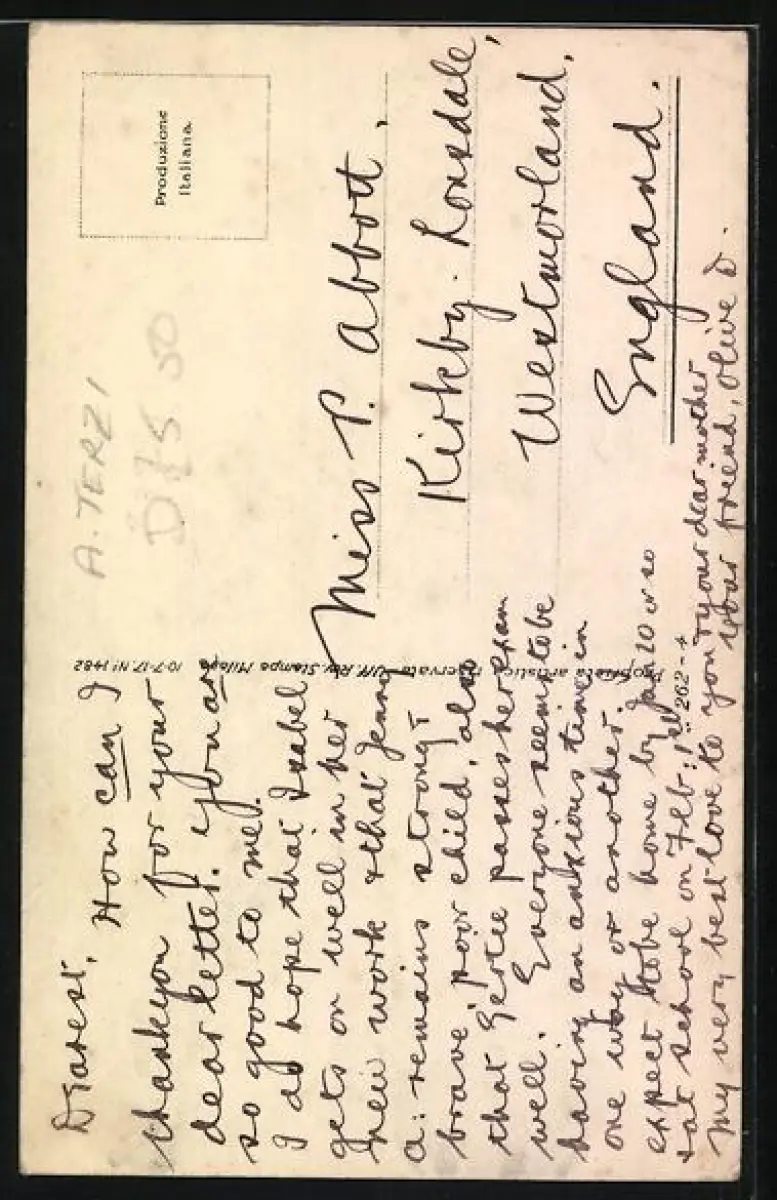 Dearest,
How can I
thank you for your
dear letter. You are
so good to me.
I do hope that Isabel
gets on well in her
new work & that Jenny
a: remains strong &
brave, poor child, also
that Gertie passes her exam
well. Everyone seems to be
having an anxious time in
one way or another.
expect to be home by Jan 20 or so
& at school on Feb: 1st
My very best love to you & your dear mother
your friend, Olive D.
Produzione
Italiana.
Miss P. Abbott,
Kirkby. Lonsdale,
Westmorland,
England.
A. TERZI
Proprietà artistica riservata - Uff. Rev. Stampa Milano 10-7-17. N° 1482
262-4